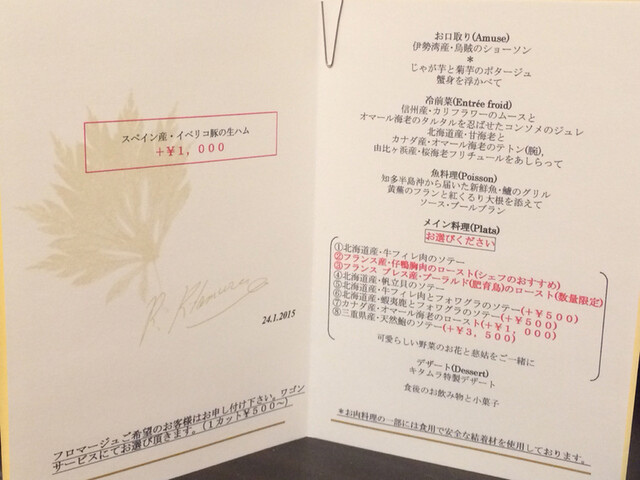 スペイン産・イベリコ豚の生ハム
+￥1,000
24.1.2015
フロマージュご希望のお客様はお申し付け下さい。ワゴン
サービスにてお選び頂きます。(1カット￥500～)
お口取り(Amuse)
伊勢湾産・烏賊のショーソン
*
じゃが芋と菊芋のポタージュ
蟹身を浮かべて
冷前菜(Entrée froid)
信州産・カリフラワーのムースと
オマール海老のタルタルを忍ばせたコンソメのジュレ
北海道産・甘海老と
カナダ産・オマール海老のテトン(腕),
由比ヶ浜産・桜海老フリチュールをあしらって
魚料理(Poisson)
知多半島沖から届いた新鮮魚・鱸のグリル
黄蕪のフランと紅くるり大根を添えて
ソース・ブールブラン
メイン料理(Plats)
お選びください
①北海道産・牛フィレ肉のソテー
②フランス産・仔鴨胸肉のロースト(シェフのおすすめ)
③フランス ブレス産・プーラルド(肥育鳥)のロースト(数量限定)
④北海道産・帆立貝のソテー
⑤北海道産・牛フィレ肉とフォワグラのソテー(+￥500)
⑥北海道産・蝦夷鹿とフォワグラのソテー(+￥500)
⑦カナダ産・オマール海老のロースト(+￥1,000)
⑧三重県産・天然鮑のソテー(+￥3,500)
可愛らしい野菜のお花と慈姑をご一緒に
デザート(Dessert)
キタムラ特製デザート
食後のお飲み物と小菓子
*お肉料理の一部には食用で安全な結着材を使用しております。